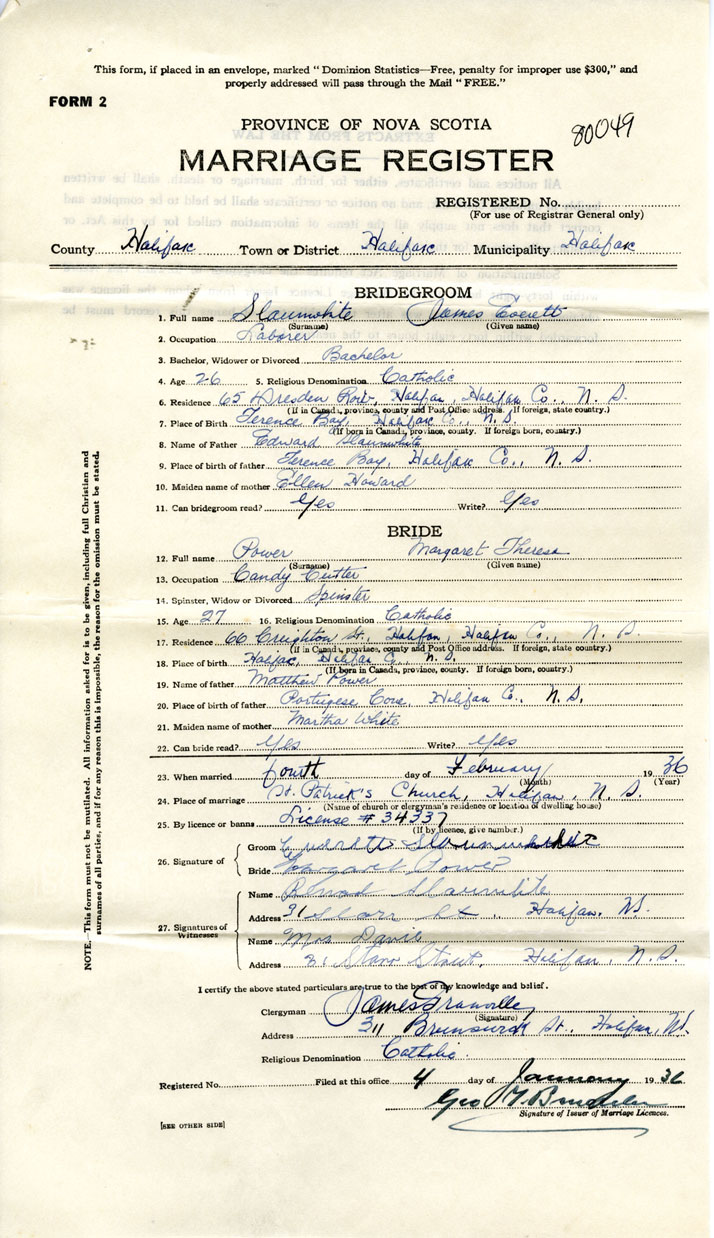 This form, if placed in an envelope, marked "Dominion Statistics—Free, penalty for improper use $300," and
properly addressed will pass through the Mail "FREE."
FORM 2
PROVINCE OF NOVA SCOTIA
80049
MARRIAGE REGISTER
REGISTERED No.
(For use of Registrar General only)
County Halifax Town or District Halifax Municipality Halifax
BRIDEGROOM
1. Full name Slaunwhite James Everett
(Surname) (Given name)
2. Occupation Laborer
3. Bachelor, Widower or Divorced Bachelor
4. Age 26 5. Religious Denomination Catholic
6. Residence 65 Dresden Row, Halifax, Halifax Co., N. S.
(If in Canada, province, county and Post Office address. If foreign, state country.)
7. Place of Birth Terence Bay, Halifax Co., N. S.
(If born in Canada, province, county. If foreign born, country.)
8. Name of Father Edward Slaunwhite
9. Place of birth of father Terence Bay, Halifax Co., N. S.
10. Maiden name of mother Ellen Howard
11. Can bridegroom read? Yes Write? Yes
BRIDE
12. Full name Power Margaret Theresa
(Surname) (Given name)
13. Occupation Candy Cutter
14. Spinster, Widow or Divorced Spinster
15. Age 27 16. Religious Denomination Catholic
17. Residence 66 Creighton St., Halifax, Halifax Co., N. S.
(If in Canada, province, county and Post Office address. If foreign, state country.)
18. Place of birth Halifax, Halifax Co., N. S.
(If born in Canada, province, county. If foreign born, country.)
19. Name of father Matthew Power
20. Place of birth of father Portugese Cove, Halifax Co., N. S.
21. Maiden name of mother Martha White
22. Can bride read? Yes Write? Yes
23. When married fourth day of February 1936
(Month) (Year)
24. Place of marriage St. Patrick's Church, Halifax, N. S.
(Name of church or clergyman's residence or location of dwelling house)
25. By licence or banns License # 34337
(If by licence, give number.)
26. Signature of
Groom Everett Slaunwhite
Bride Margaret Power
27. Signatures of Witnesses
Name Slaunwhite
Address 31 St., Halifax, N.S.
Name Mrs Davis
Address 31 Starr Street, Halifax, N. S.
I certify the above stated particulars are true to the best of my knowledge and belief.
Clergyman James Granville
(Signature)
Address 311 Brunswick St., Halifax, N.S.
Religious Denomination Catholic.
Registered No. Filed at this office 4 day of January 1936
Geo
Signature of Issuer of Marriage Licences.
[SEE OTHER SIDE]
NOTE.—This form must not be mutilated. All information asked for is to be given, including full Christian and
surnames of all parties, and if for any reason this is impossible, the reason for the omission must be stated.